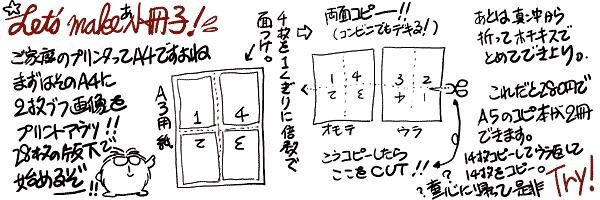 Let's make 小冊子!
ご家庭のプリンタってA4ですよね
まずはそのA4に
2枚づつ画像を
プリントアウツ!!
28枚の版下で
始めるぞ!!
A3用紙
1 4
2 3
4枚を1くぎりに倍数で
面つけ。
両面コピー!!
(コンビニでもデキる!)
1 4
2 3
3 2
4 1
オモテ
ウラ
こうコピーしたら
ここをCUT!!
あとは真ン中から
折ってホチキスで
とめてでき上り。
これだと280円で
A5のコピ本が2冊
できます。
14枚コピーしてウラ返して
14枚をコピー。
?童心に帰って是非
Try!